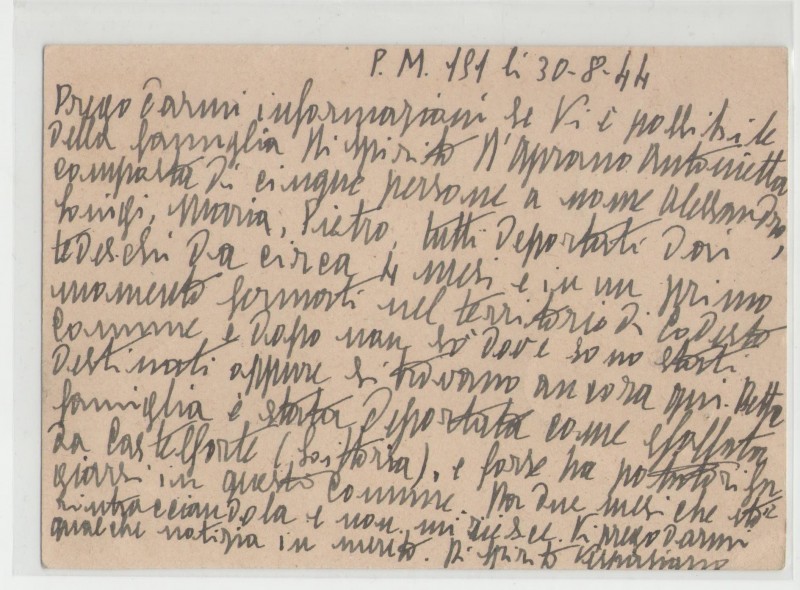 P. M. 191 li 30-8-44
Prego darmi informazioni se Vi è possibile
della famiglia Di Spirito D'Aprano Antonietta
composta di cinque persone a nome Alessandro,
Luigi, Maria, Pietro, tutti deportati dai
tedeschi da circa 4 mesi e in un primo
momento fermati nel territorio di Codesto
Comune e dopo non so dove sono stati
destinati oppure si trovano ancora qui. Detta
famiglia è stata deportata come sfollata
da Castelforte (Littoria), e forse ha potuto rifu
giarsi in questo Comune. Da due mesi che sto
rintracciandola e non mi riesce. Vi prego darmi
qualche notizia in merito. Di Spirito Vespasiano